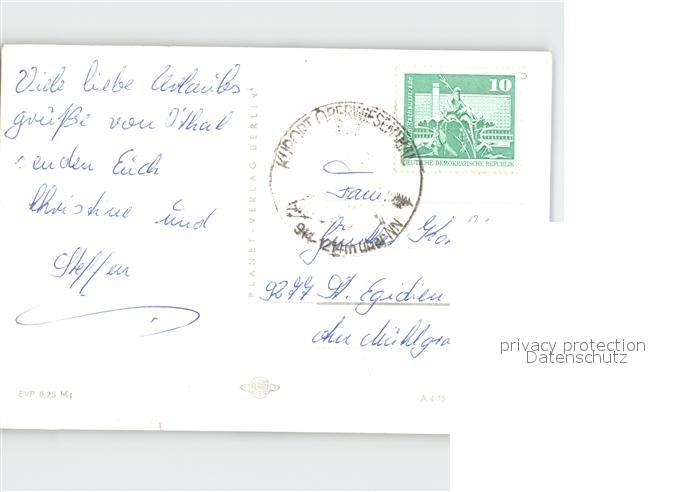 Viele liebe Urlaubs-
grüße von O'thal
senden Euch
Christine und
Steffen
EVP 0,25 M
PLANET-VERLAG BERLIN
A 4 75
10
DEUTSCHE DEMOKRATISCHE REPUBLIK
KURORT OBERWIESENTHAL
Fam.
9277 St. Egidien
Am Mühlgra
privacy protection
Datenschutz